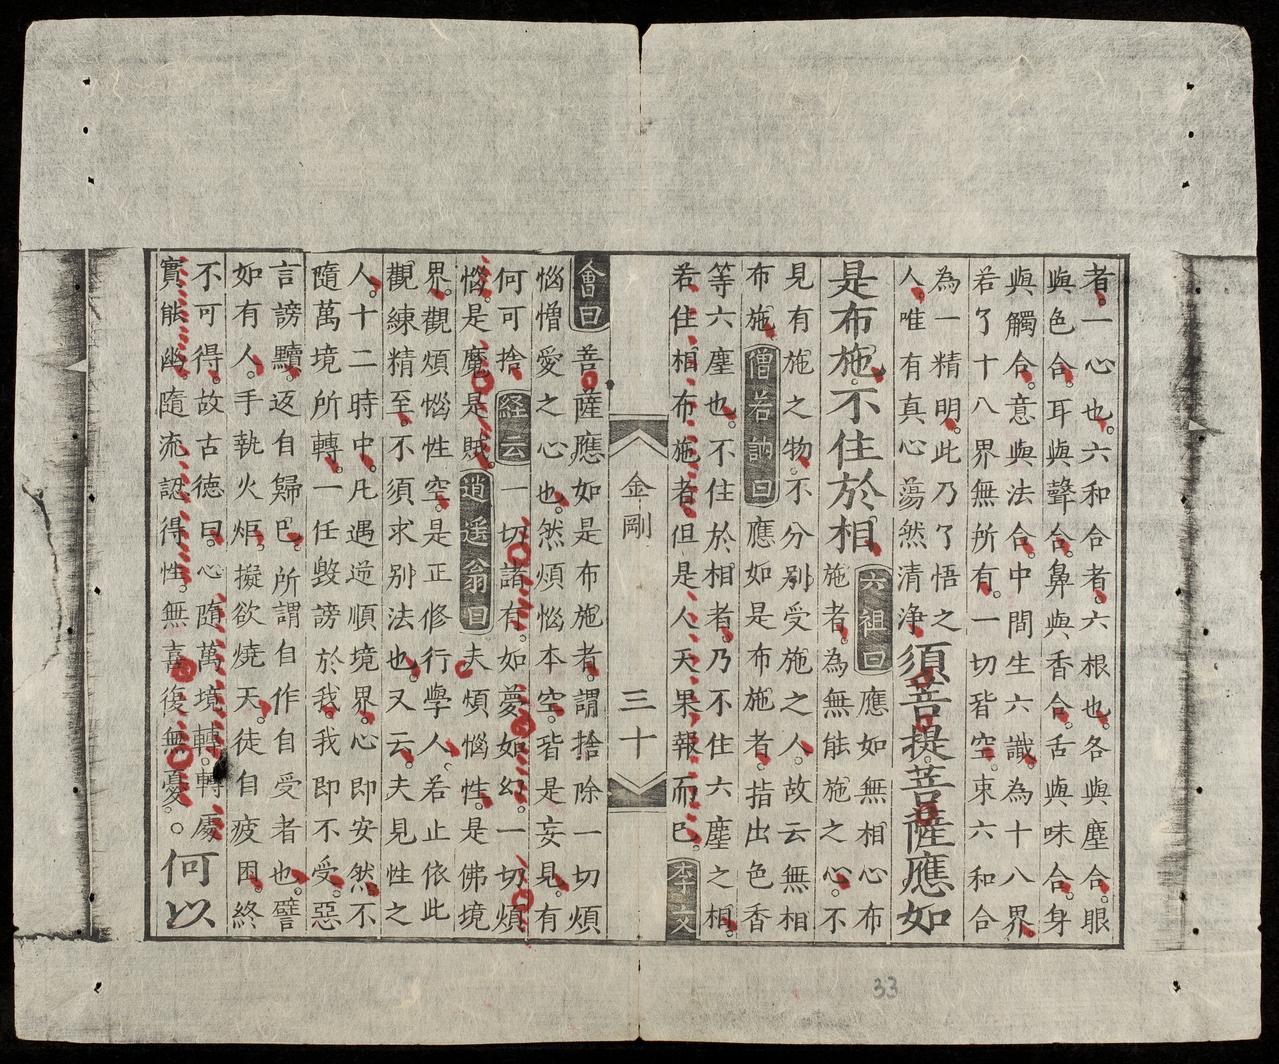 者。一心也。六和合者。六根也。各與塵合。眼
與色合。耳與聲合。鼻與香合。舌與味合。身
與觸合。意與法合。中間生六識。為十八界。
若了十八界無所有。一切皆空。束六和合
為一精明。此乃了悟之
人。唯有真心蕩然清淨。須菩提。菩薩應如
是布施。不住於相。六祖曰應如無相心布
施者。為無能施之心。不
見有施之物。不分別受施之人。故云無相
布施。僧若訥曰應如是布施者。指出色香
等六塵也。不住於相者。乃不住六塵之相。
若住相布施者。但是人天果報而已。李文
金剛
三十
會曰菩薩應如是布施者。謂捨除一切煩
惱憎愛之心也。然煩惱本空。皆是妄見。有
何可捨。経云一切諸有。如夢如幻。一切煩
惱。是魔是賊。逍遥翁曰夫煩惱性。是佛境
界。觀煩惱性空。是正修行學人。若止依此
觀練精至。不須求別法也。又云。夫見性之
人。十二時中。凡遇逆順境界。心即安然。不
隨萬境所轉。一任毀謗於我。我即不受。惡
言謗黷。返自歸巴。所謂自作自受者也。譬
如有人。手執火炬。擬欲燒天。徒自疲困。終
不可得。故古德曰。心隨萬境轉。轉處
實能幽。隨流認得性。無喜復無憂。。何以
33